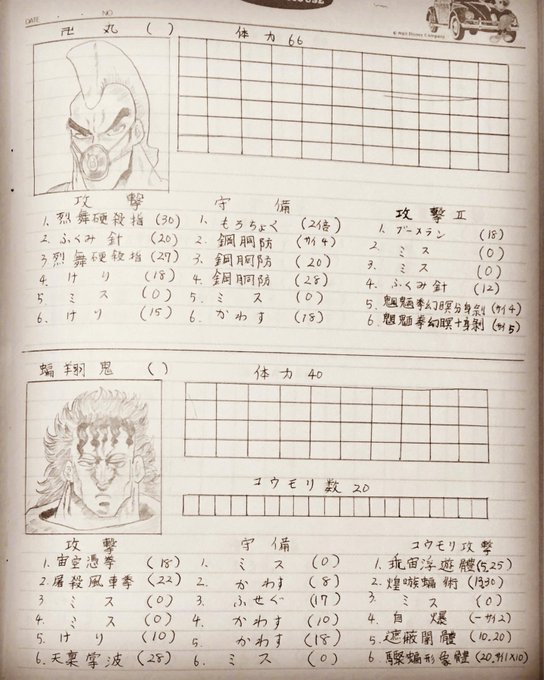 DATE NO HOUSE
© Walt Disney Company
卍丸 ( ) 体力 66
攻撃 守備 攻撃Ⅱ
1. 烈舞硬殺指 (30) 1. もろちょく (2倍) 1. ブーメラン (18)
2. ふくみ針 (20) 2. 鋼胴防 (サイ4) 2. ミス (0)
3 烈舞硬殺指 (27) 3. 鋼胴防 (20) 3. ミス (0)
4. けり (18) 4. 鋼胴防 (28) 4. ふくみ針 (12)
5 ミス (0) 5 ミス (0) 5. 魍魎拳幻瞑分身剥 (サイ4)
6. けり (15) 6. かわす (18) 6. 魍魎拳幻瞑十身剥 (サイ5)
蝙翔鬼 ( ) 体力 40
コウモリ数 20
攻撃 守備 コウモリ攻撃
1. 宙空憑拳 (18) 1. ミス (0) 1. 宙浮遊體 (5,25)
2. 屠殺風車拳 (22) 2. かわす (8) 2. 蝙術 (19,30)
3 ミス (0) 3. ふせぐ (17) 3. ミス (0)
4. ミス (0) 4. かわす (10) 4. 自爆 (ーサイ2)
5 けり (10) 5. かわす (18) 5. 遮蔽闇體 (10.20)
6. 天稟掌波 (28) 6. ミス (0) 6. 蝙形象體 (20.サイ1×10)